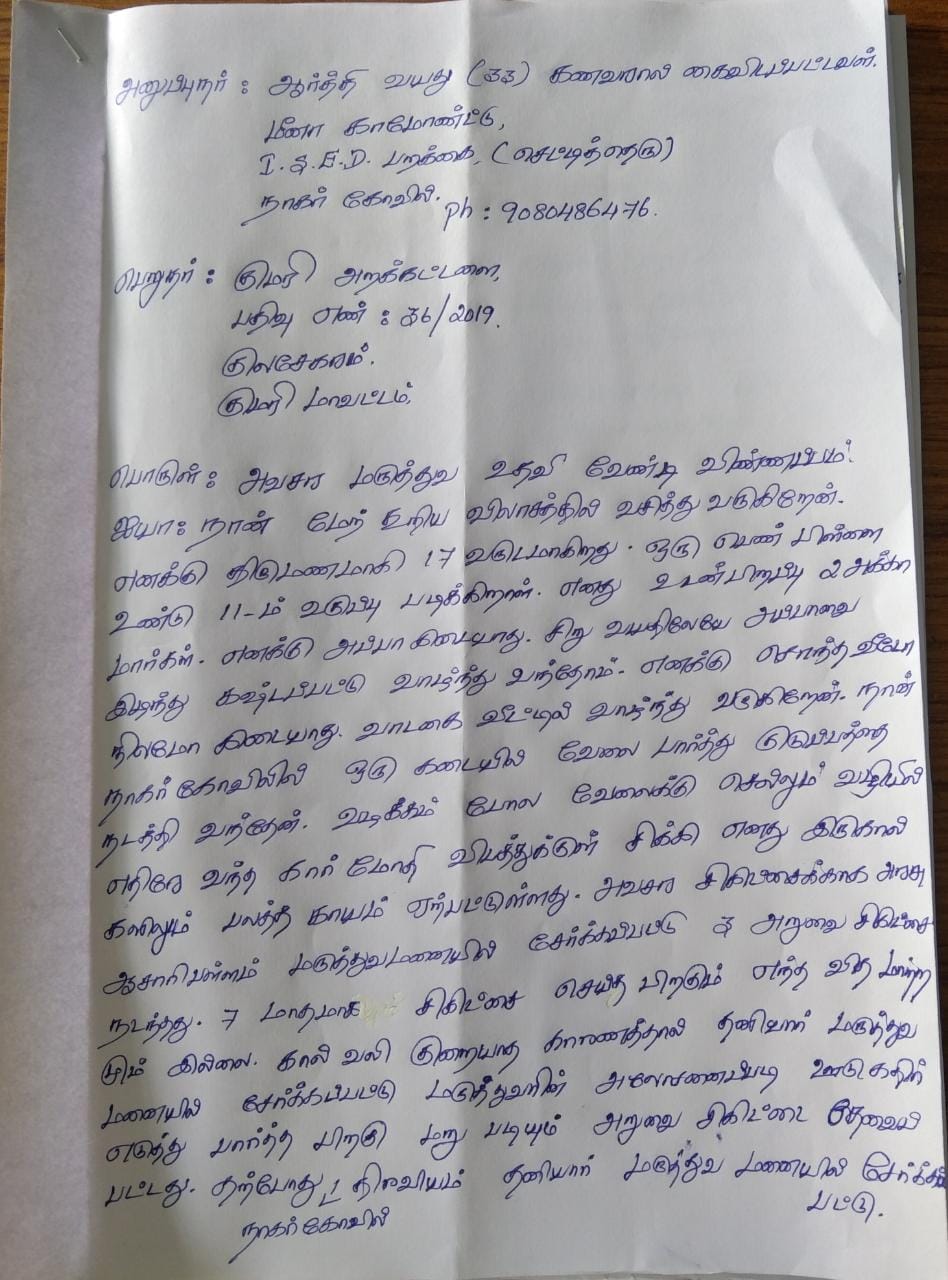 அனுப்புநர் : ஆர்த்தி வயது (33) கணவரால் கைவிடப்பட்டவள்.
மீனா காமோண்ட்டு,
I.S.E.D. பறக்கை, (செட்டித்தெரு)
நாகர் கோவில்.
ph : 9080486476.
பெறுநர் : குமரி அறக்கட்டளை,
பதிவு எண் : 36/2019.
குலசேகரம்.
குமரி மாவட்டம்.
பொருள் : அவசர மருத்துவ உதவி வேண்டி விண்ணப்பம்.
ஐயா : நான் மேற் கூறிய விலாசத்தில் வசித்து வருகிறேன்.
எனக்கு திருமணமாகி 17 வருடமாகிறது. ஒரு பெண் பிள்ளை
உண்டு 11-ம் வகுப்பு படிக்கிறாள். எனது உடன்பிறப்பு 2 அக்கா
மார்கள். எனக்கு அப்பா கிடையாது. சிறு வயதிலேயே அப்பாவை
இழந்து கஷ்டப்பட்டு வாழ்ந்து வந்தோம். எனக்கு சொந்த வீடோ
நிலமோ கிடையாது. வாடகை வீட்டில் வாழ்ந்து வருகிறேன். நான்
நாகர்கோவிலில் ஒரு கடையில் வேலை பார்த்து குடும்பத்தை
நடத்தி வந்தேன். வழக்கம் போல வேலைக்கு செல்லும் வழியில்
எதிரே வந்த கார் மோதி விபத்துக்குள் சிக்கி எனது இருகால்
களிலும் பலத்த காயம் ஏற்பட்டுள்ளது. அவசர சிகிட்சைக்காக அரசு
ஆசாரிபள்ளம் மருத்துவமனையில் சேர்க்கப்பட்டு 3 அறுவை சிகிட்சை
நடந்தது. 7 மாதமாக சிகிட்சை செய்த பிறகும் எந்த வித மாற்ற
மும் இல்லை. கால் வலி குறையாத காரணத்தால் தனியார் மருத்துவ
மனையில் சேர்க்கப்பட்டு மருத்துவரின் அலோசனைப்படி ஊடுகதிர்
எடுத்து பார்த்த பிறகு மறு படியும் அறுவை சிகிட்டை தேவைப்
பட்டது. தற்போது திரவியம் தனியார் மருத்துவ மனையில் சேர்க்கப்
பட்டு.
நாகர்கோவில்